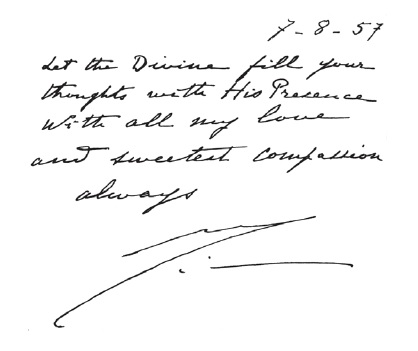 7-8-57
Let the Divine fill your
thoughts with His Presence
With all my love
and sweetest compassion
always